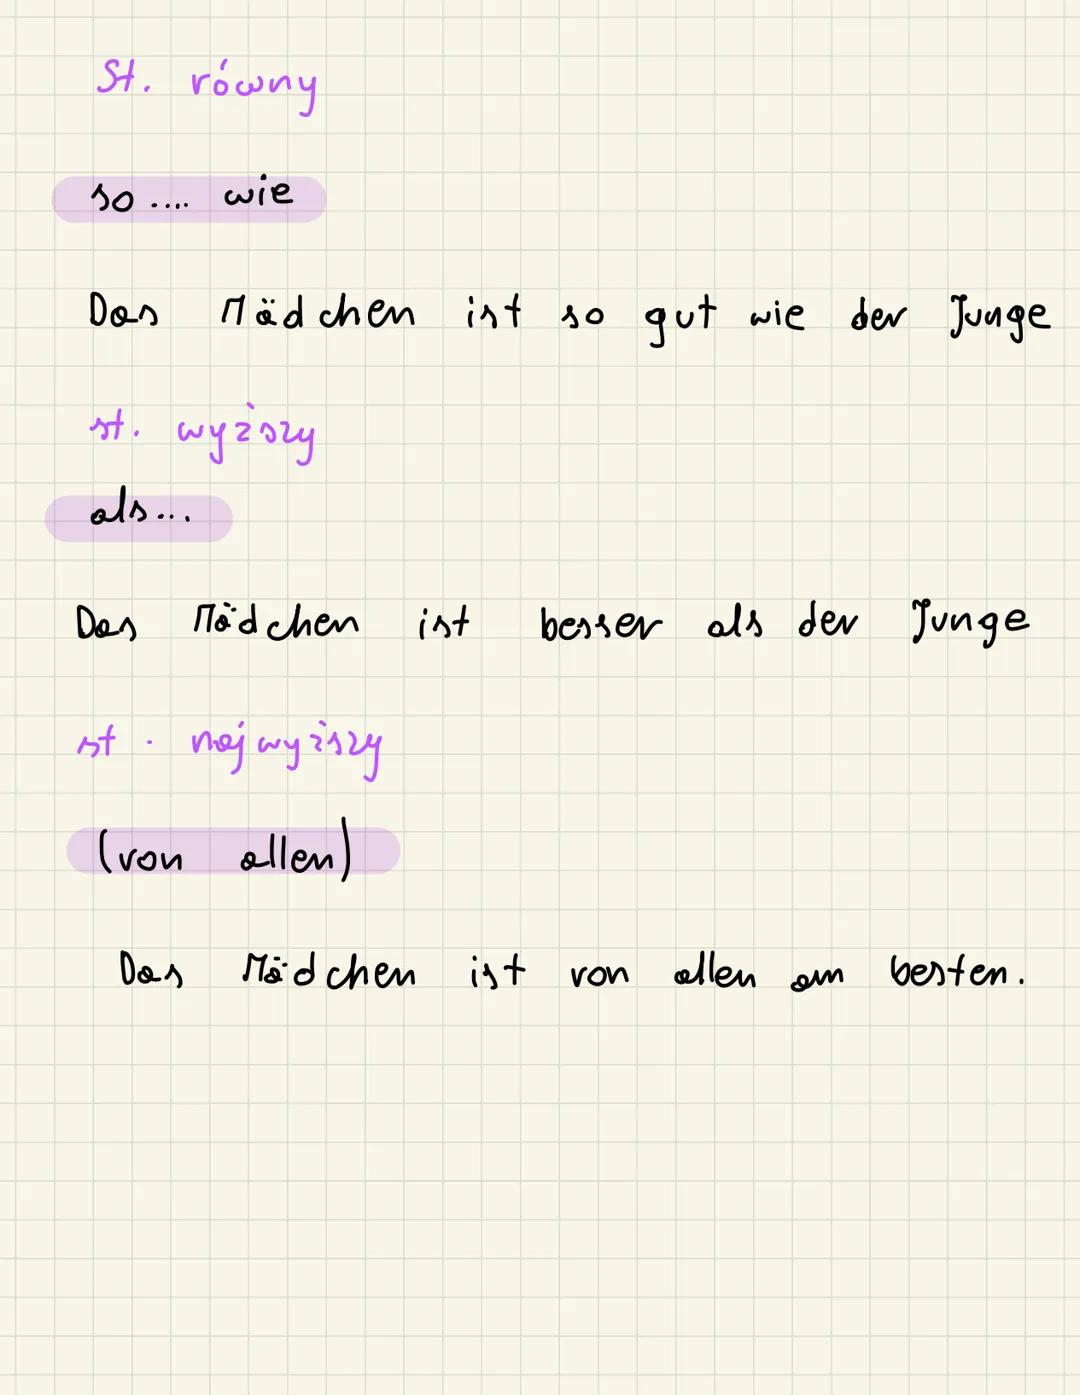 St. równy
so .... wie
Das Mädchen ist so gut wie der Junge
st. wyższy
als...
Das Mädchen ist besser als der Junge
st. najwyższy
(von allen)
Das Mädchen ist von allen am besten.